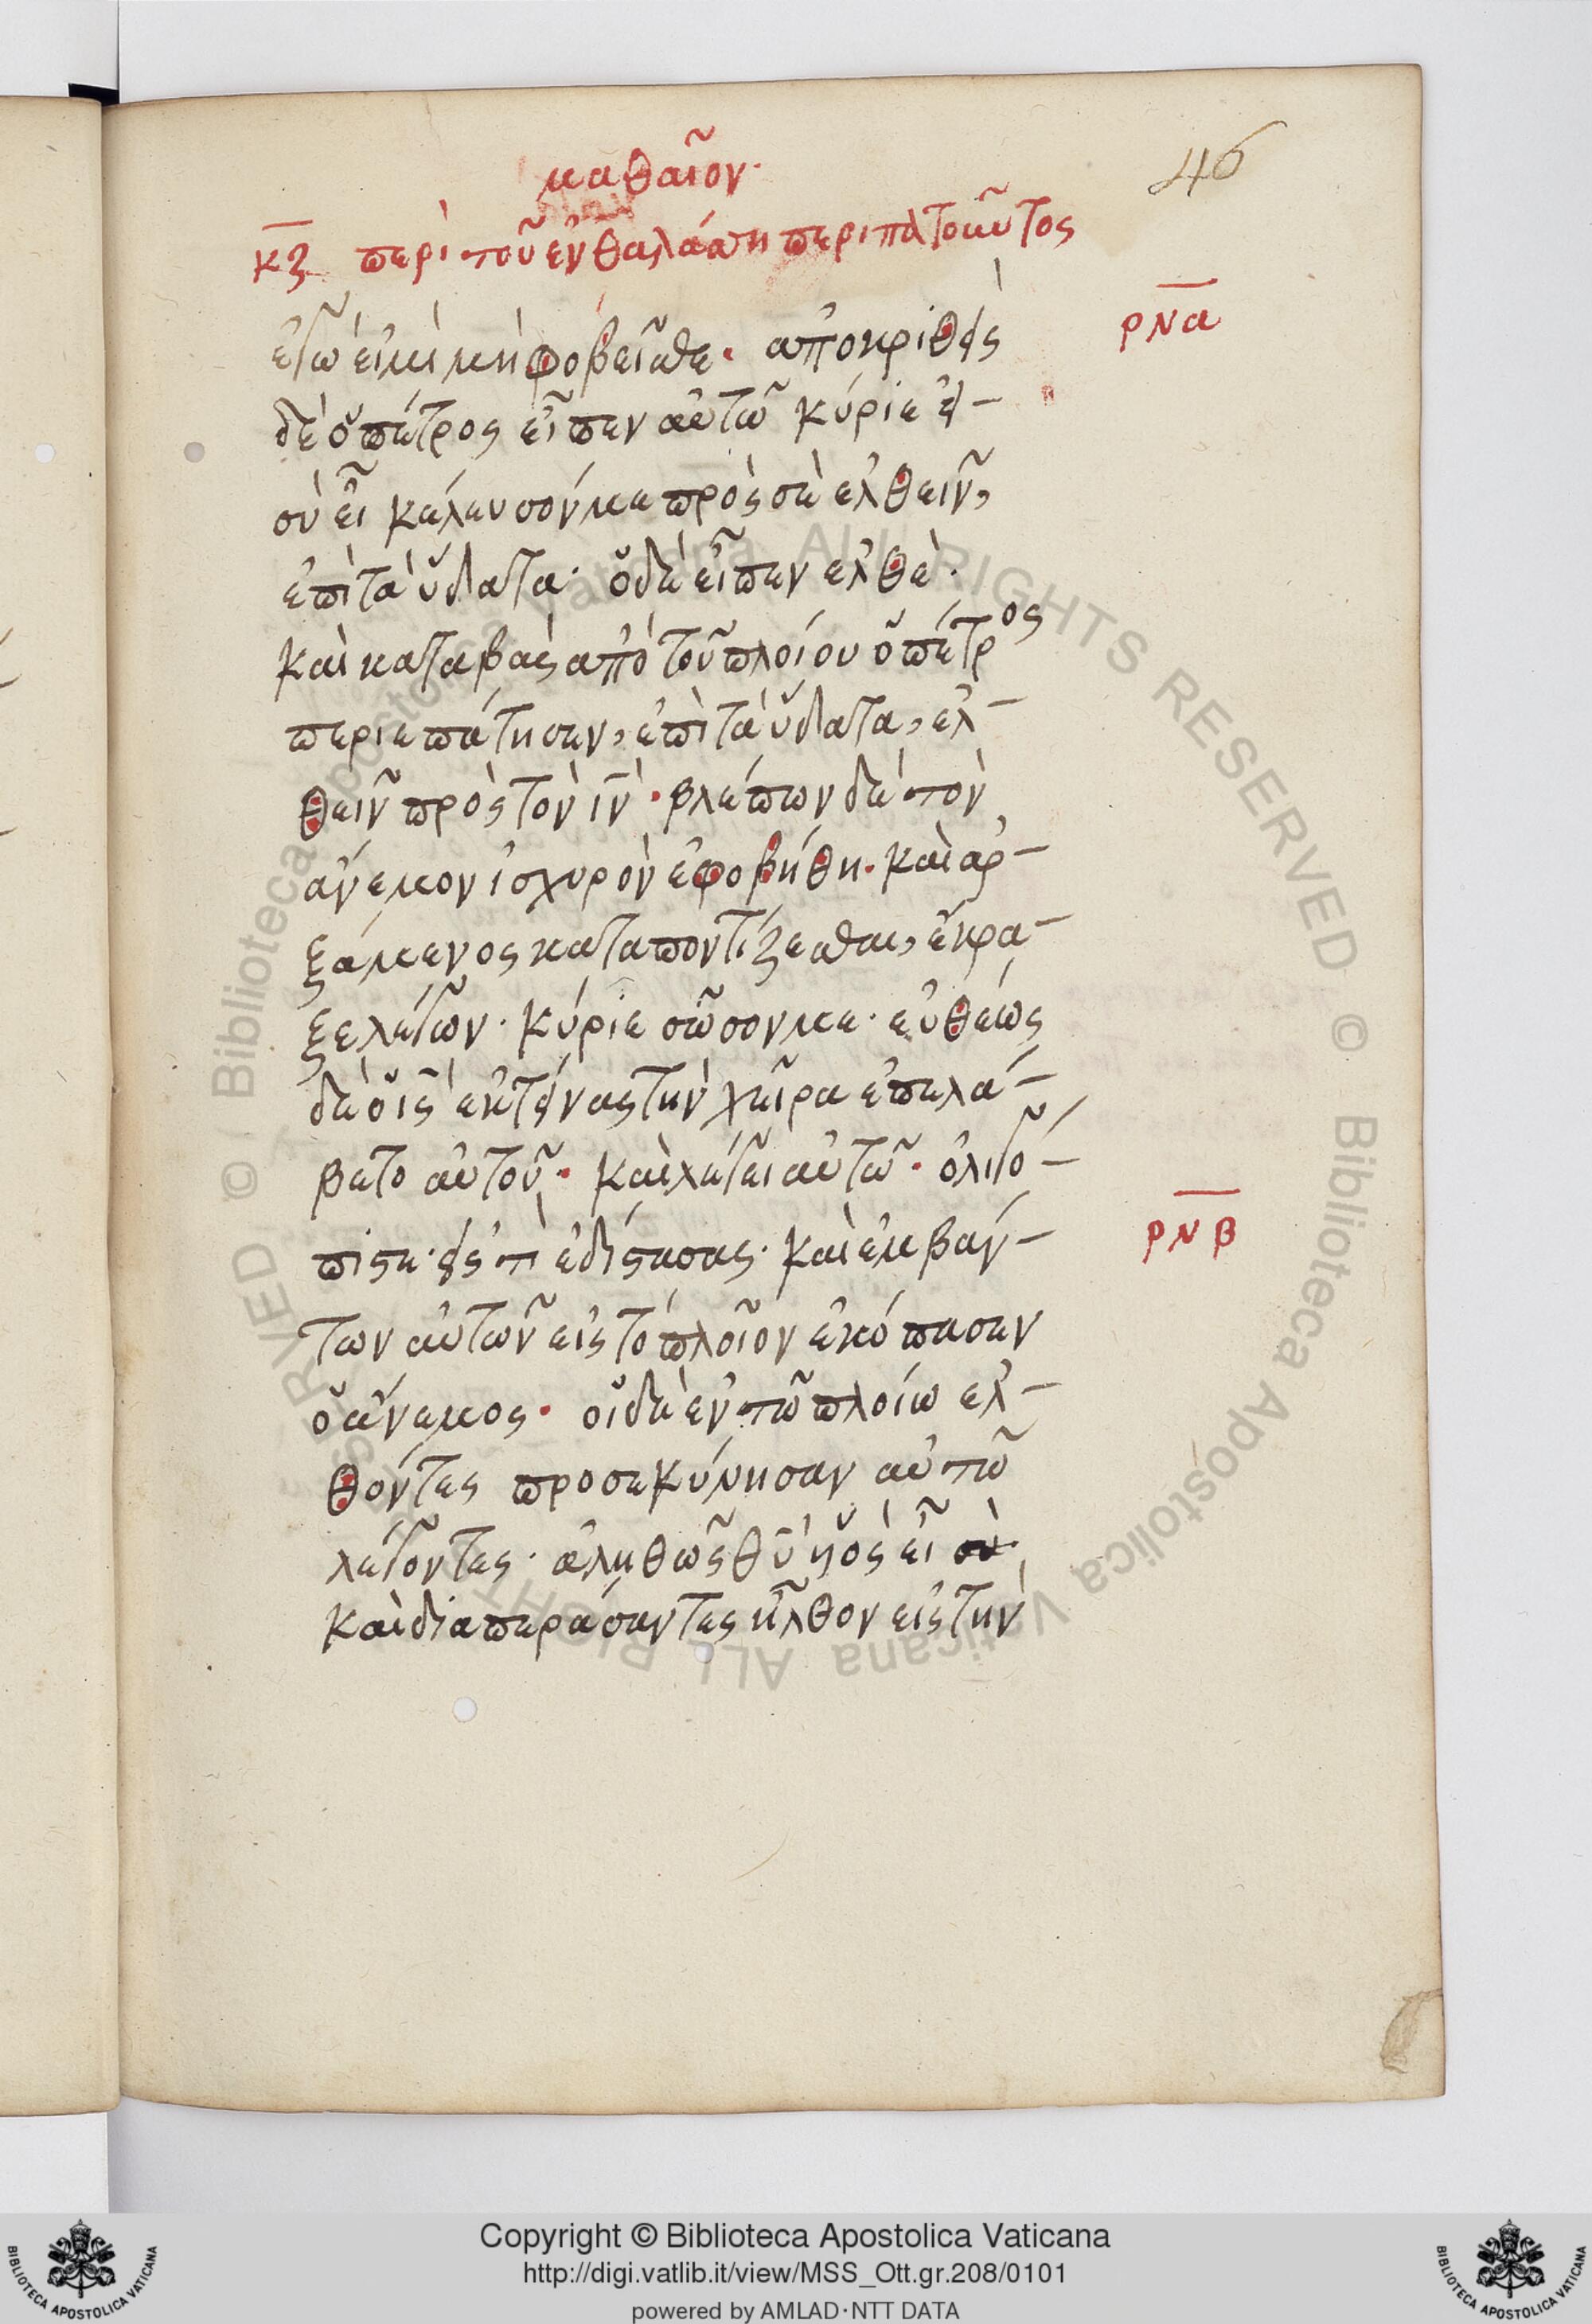 μαθαῖον·
46
κζ περὶ τοῦ ἐν θαλάσση περιπατοῦντος
ρνα
ἐγώ εἰμι μὴ φοβεῖσθε· ἀποκριθεὶς
δὲ ὁ πέτρος εἶπεν αὐτῶ κύριε εἰ-
σὺ εἶ κέλευσόν με πρὸς σὲ ἐλθεῖν,
ἐπὶ τὰ ὕδατα· ὁ δὲ εἶπεν ἐλθὲ·
καὶ καταβὰς ἀπὸ τοῦ πλοίου ὁ πέτρος
περιεπάτησεν, ἐπὶ τὰ ὕδατα, ἐλ-
θεῖν πρὸς τὸν ιν· βλέπων δὲ τὸν
ἄνεμον ἰσχυρὸν ἐφοβήθη· καὶ ἀρ-
ξάμενος καταποντίζεσθαι, ἔκρα-
ξε λέγων· κύριε σῶσον με· εὐθέως
δὲ ὁ ις ἐκτείνας τὴν χεῖρα ἐπελά-
βετο αὐτοῦ· καὶ λέγει αὐτῶ· ὀλιγό-
πιστε· εἰς τὶ ἐδίστασας· καὶ ἐμβάν-
ρνβ
των αὐτῶν εἰς τὸ πλοῖον ἐκόπασεν
ὁ ἄνεμος· οἱ δὲ ἐν τῶ πλοίω ἐλ-
θόντες προσεκύνησαν αὐτῶ
λέγοντες· ἀληθῶς θυ υἱὸς εἶ σὺ·
καὶ διαπεράσαντες ἦλθον εἰς τὴν
BIBLIOTECA APOSTOLICA VATICANA
Copyright © Biblioteca Apostolica Vaticana
http://digi.vatlib.it/view/MSS_Ott.gr.208/0101
powered by AMLAD·NTT DATA
BIBLIOTECA APOSTOLICA VATICANA
© Biblioteca Apostolica Vaticana ALL RIGHTS RESERVED © Biblioteca Apostolica Vaticana ALL RIGHTS RESERVED